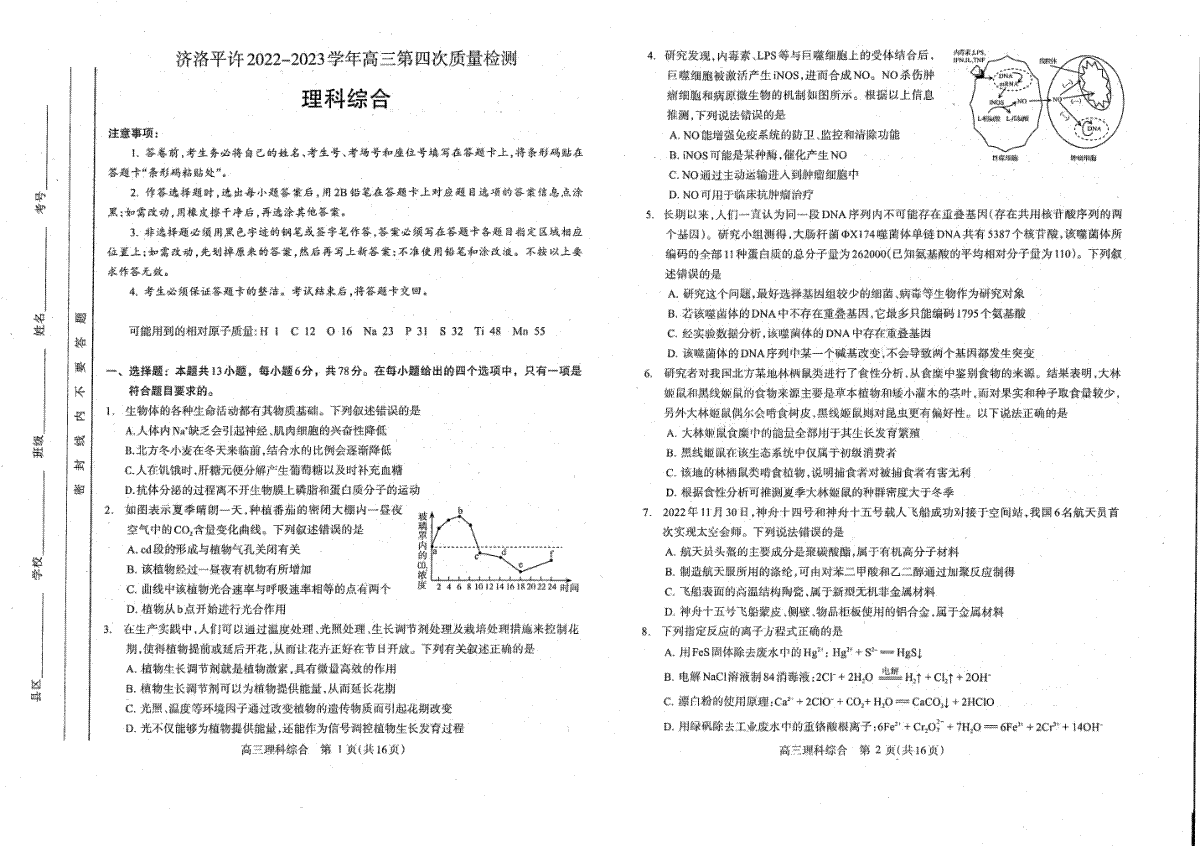 济洛平许2022-2023学年高三第四次质量检测
理科综合
注意事项:
1. 答卷前,考生务必将自己的姓名、考生号、考场号和座位号填写在答题卡上,将条形码贴在
答题卡“条形码粘贴处”。
2. 作答选择题时,选出每小题答案后,用2B铅笔在答题卡上对应题目选项的答案信息点涂
黑;如需改动,用橡皮擦干净后,再选涂其他答案。
3. 非选择题必须用黑色字迹的钢笔或签字笔作答,答案必须写在答题卡各题目指定区域相应
位置上;如需改动,先划掉原来的答案,然后再写上新答案;不准使用铅笔和涂改液。不按以上要
求作答无效。
4. 考生必须保证答题卡的整洁。考试结束后,将答题卡交回。
可能用到的相对原子质量:H 1 C 12 O 16 Na 23 P 31 S 32 Ti 48 Mn 55
一、选择题:本题共13小题,每小题6分,共78分。在每小题给出的四个选项中,只有一项是
符合题目要求的。
1. 生物体的各种生命活动都有其物质基础。下列叙述错误的是
A.人体内Na⁺缺乏会引起神经、肌肉细胞的兴奋性降低
B.北方冬小麦在冬天来临前,结合水的比例会逐渐降低
C.人在饥饿时,肝糖元便分解产生葡萄糖以及时补充血糖
D.抗体分泌的过程离不开生物膜上磷脂和蛋白质分子的运动
2. 如图表示夏季晴朗一天,种植番茄的密闭大棚内一昼夜
空气中的CO₂含量变化曲线。下列叙述错误的是
A. cd段的形成与植物气孔关闭有关
B. 该植物经过一昼夜有机物有所增加
C. 曲线中该植物光合速率与呼吸速率相等的点有两个
D. 植物从b点开始进行光合作用
玻璃罩内的CO₂浓度
a
b
c
d
e
f
2 4 6 8 10 12 14 16 18 20 22 24 时间
3. 在生产实践中,人们可以通过温度处理、光照处理、生长调节剂处理及栽培处理措施来控制花
期,使得植物提前或延后开花,从而让花卉正好在节日开放。下列有关叙述正确的是
A. 植物生长调节剂就是植物激素,具有微量高效的作用
B. 植物生长调节剂可以为植物提供能量,从而延长花期
C. 光照、温度等环境因子通过改变植物的遗传物质而引起花期改变
D. 光不仅能够为植物提供能量,还能作为信号调控植物生长发育过程
高三理科综合 第 1 页(共16页)
考号
姓名
班级
学校
县区
密封线内不要答题
4. 研究发现,内毒素、LPS等与巨噬细胞上的受体结合后,
巨噬细胞被激活产生iNOS,进而合成NO。NO杀伤肿
瘤细胞和病原微生物的机制如图所示。根据以上信息
推测,下列说法错误的是
A. NO能增强免疫系统的防卫、监控和清除功能
B. iNOS可能是某种酶,催化产生NO
C. NO通过主动运输进入到肿瘤细胞中
D. NO可用于临床抗肿瘤治疗
内毒素,LPS,
IFN,IL,TNF
DNA
mRNA
iNOS
NO
NO
(—)
(—)
(—)
DNA
巨噬细胞
肿瘤细胞
5. 长期以来,人们一直认为同一段DNA序列内不可能存在重叠基因(存在共用核苷酸序列的两
个基因)。研究小组测得,大肠杆菌ΦX174噬菌体单链DNA共有5387个核苷酸,该噬菌体所
编码的全部11种蛋白质的总分子量为262000(已知氨基酸的平均相对分子量为110)。下列叙
述错误的是
A. 研究这个问题,最好选择基因组较少的细菌、病毒等生物作为研究对象
B. 若该噬菌体的DNA中不存在重叠基因,它最多只能编码1795个氨基酸
C. 经实验数据分析,该噬菌体的DNA中存在重叠基因
D. 该噬菌体的DNA序列中某一个碱基改变,不会导致两个基因都发生突变
6. 研究者对我国北方某地林栖鼠类进行了食性分析,从食糜中鉴别食物的来源。结果表明,大林
姬鼠和黑线姬鼠的食物来源主要是草本植物和矮小灌木的茎叶,而对果实和种子取食量较少,
另外大林姬鼠偶尔会啃食树皮,黑线姬鼠则对昆虫更有偏好性。以下说法正确的是
A. 大林姬鼠食糜中的能量全部用于其生长发育繁殖
B. 黑线姬鼠在该生态系统中仅属于初级消费者
C. 该地的林栖鼠类啃食植物,说明捕食者对被捕食者有害无利
D. 根据食性分析可推测夏季大林姬鼠的种群密度大于冬季
7. 2022年11月30日,神舟十四号和神舟十五号载人飞船成功对接于空间站,我国6名航天员首
次实现太空会师。下列说法错误的是
A. 航天员头盔的主要成分是聚碳酸酯,属于有机高分子材料
B. 制造航天服所用的涤纶,可由对苯二甲酸和乙二醇通过加聚反应制得
C. 飞船表面的高温结构陶瓷,属于新型无机非金属材料
D. 神舟十五号飞船蒙皮、侧壁、物品柜板使用的铝合金,属于金属材料
8. 下列指定反应的离子方程式正确的是
A. 用FeS固体除去废水中的Hg²⁺: Hg²⁺ + S²⁻ ══ HgS↓
B. 电解NaCl溶液制84消毒液:2Cl⁻ + 2H₂O 电解══ H₂↑ + Cl₂↑ + 2OH⁻
C. 漂白粉的使用原理:Ca²⁺ + 2ClO⁻ + CO₂ + H₂O ══ CaCO₃↓ + 2HClO
D. 用绿矾除去工业废水中的重铬酸根离子:6Fe²⁺ + Cr₂O₇²⁻ + 7H₂O ══ 6Fe³⁺ + 2Cr³⁺ + 14OH⁻
高三理科综合 第 2 页(共16页)